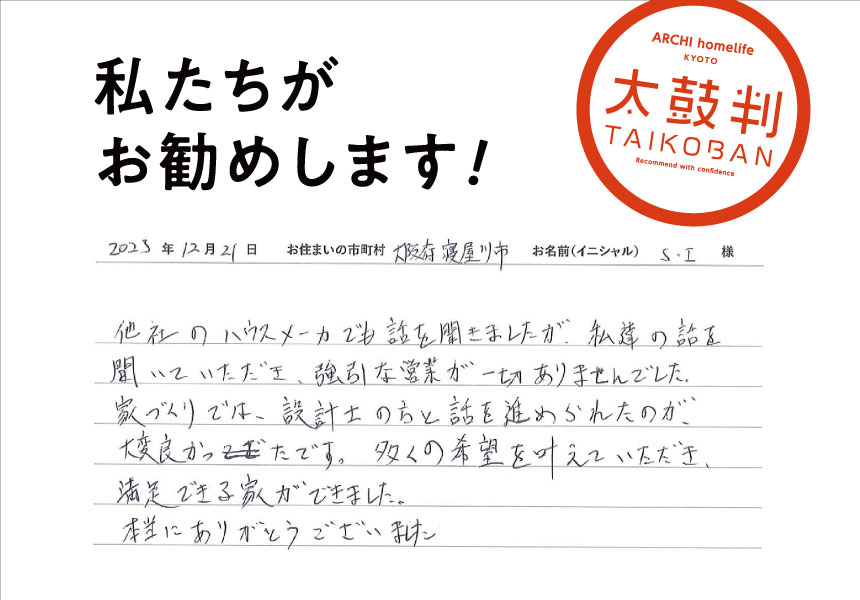 私たちが
お勧めします!
ARCHI homelife
KYOTO
太鼓判
TAIKOBAN
Recommend with confidence
2023 年 12 月 21 日 お住まいの市町村 大阪府寝屋川市 お名前(イニシャル) S・I 様
他社のハウスメーカでも話を聞きましたが、私達の話を
聞いていただき、強引な営業が一切ありませんでした。
家づくりでは、設計士の方と話を進められたのが、
大変良かったです。多くの希望を叶えていただき、
満足できる家ができました。
本当にありがとうございました